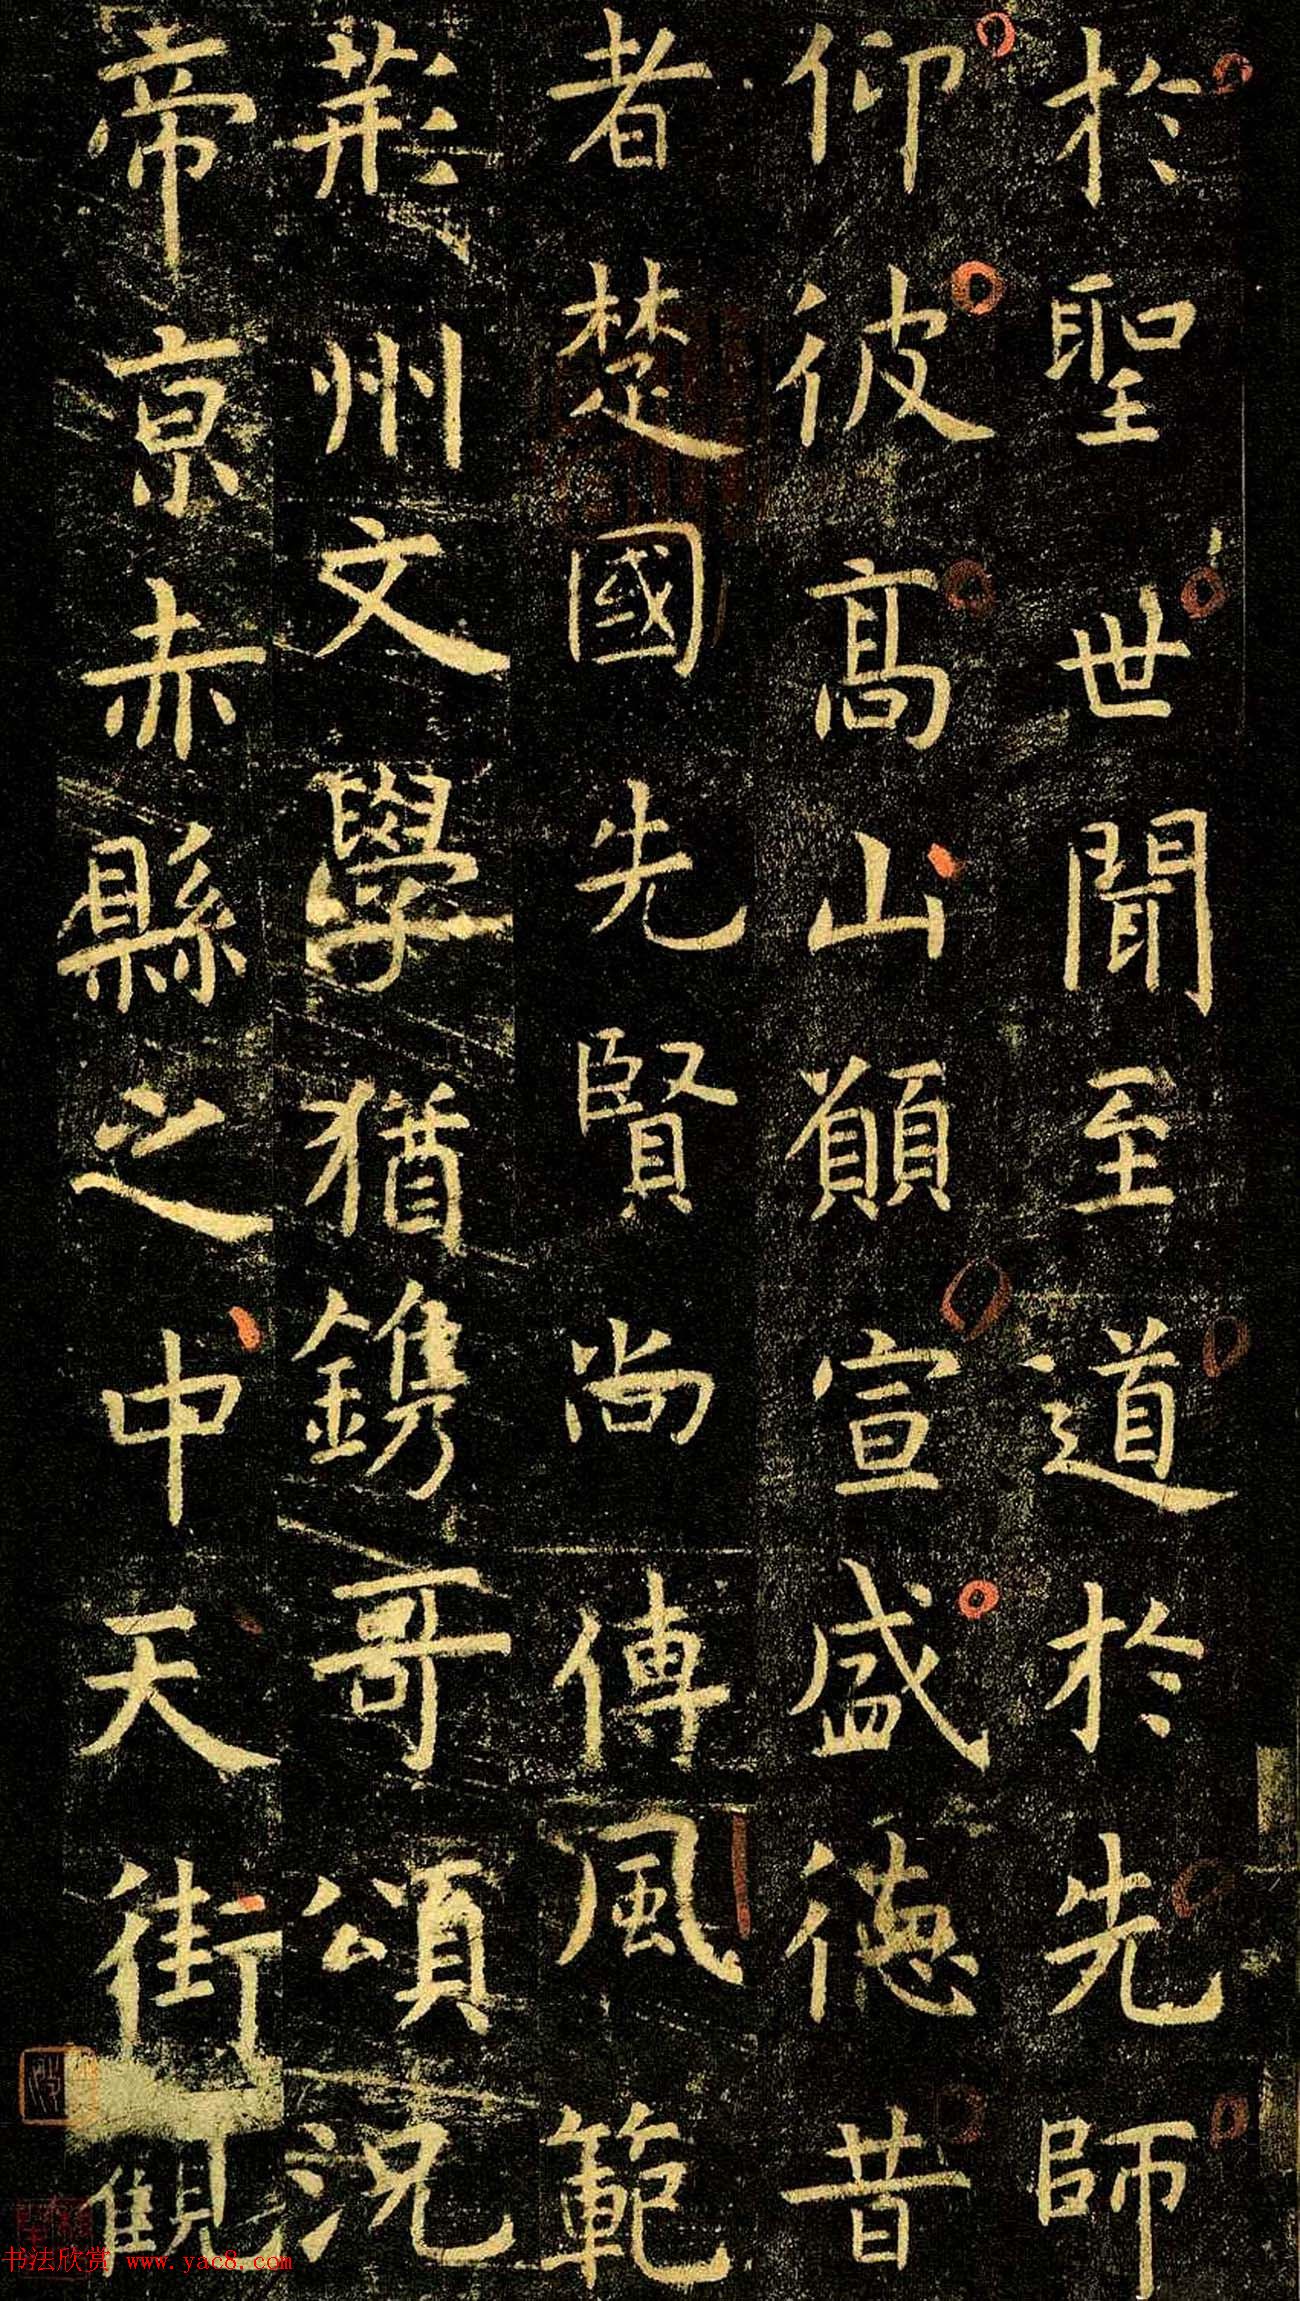 於聖世聞至道於先師
仰彼高山願宣盛德昔
者楚國先賢尚傳風範
荊州文學猶鐫哥頌況
帝京赤縣之中天街觀
书法欣赏 www.yac8.com